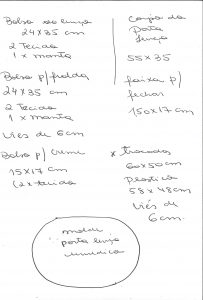 Bolso do lenço
24 x 35 cm
2 Tecido
1 x manta
Bolso p/ fralda
24 x 35 cm
2 Tecido
1 x manta
Viés de 6cm
Bolso p/ creme
15 x 17 cm
(2 x tecido
Corpo do
porta
lenço
55 x 35
faixa p/
fechar
150 x 17 cm
* trocador
60 x 50 cm
plastico
58 x 48 cm
Viés de
6cm.
molde
porta lenço
umidico